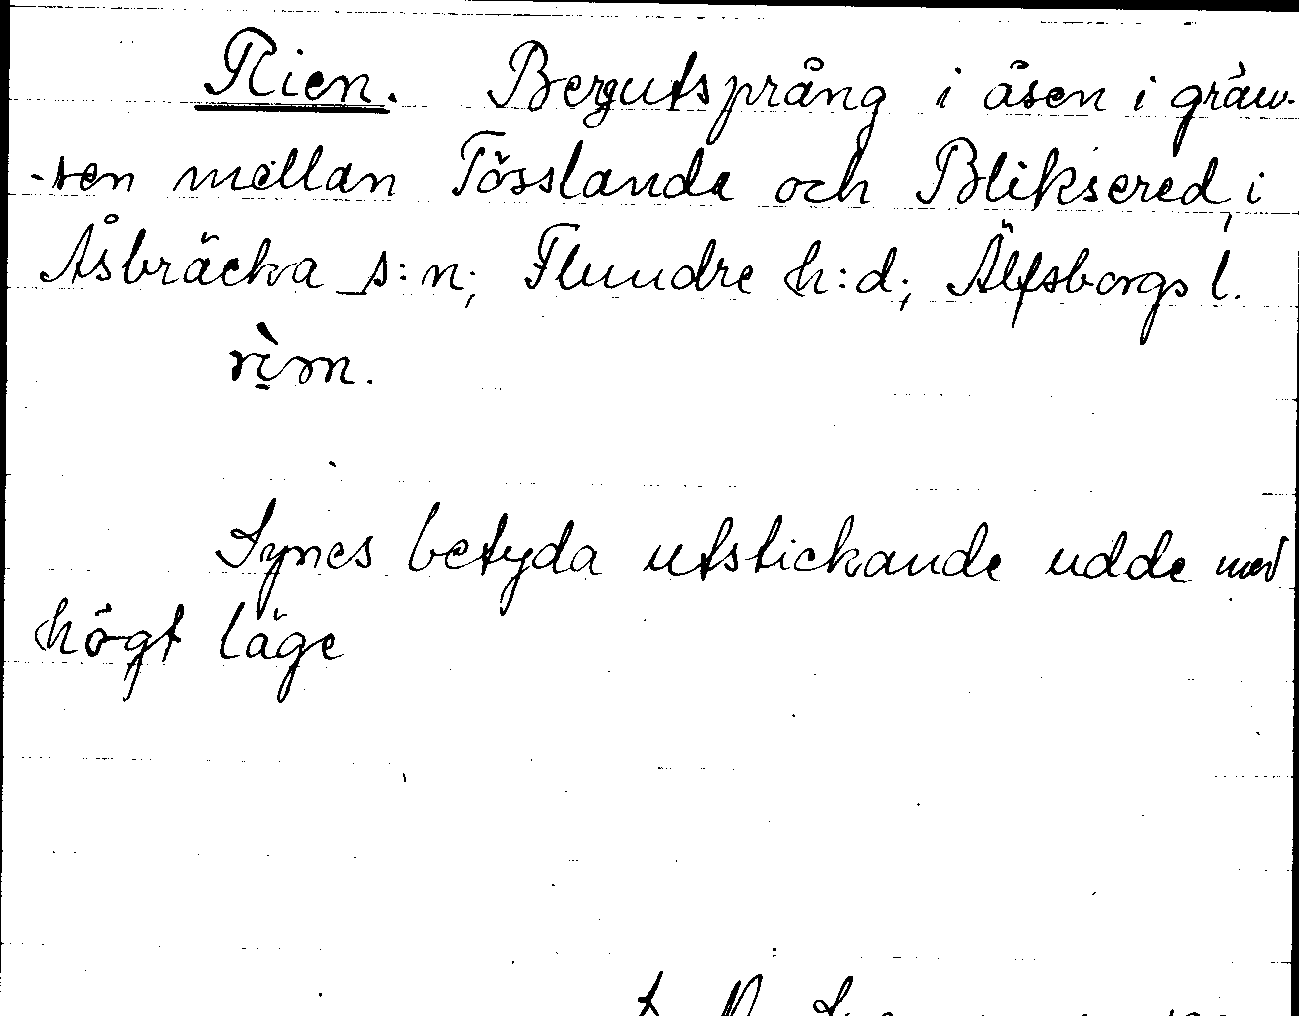 Rien. Bergutsprång i åsen i grän-
-sen mellan Tösslanda och Bliksered, i
Åsbräcka s:n; Flundre h:d; Älfsborgs l.
Synes betyda utstickande udde med
högt läge